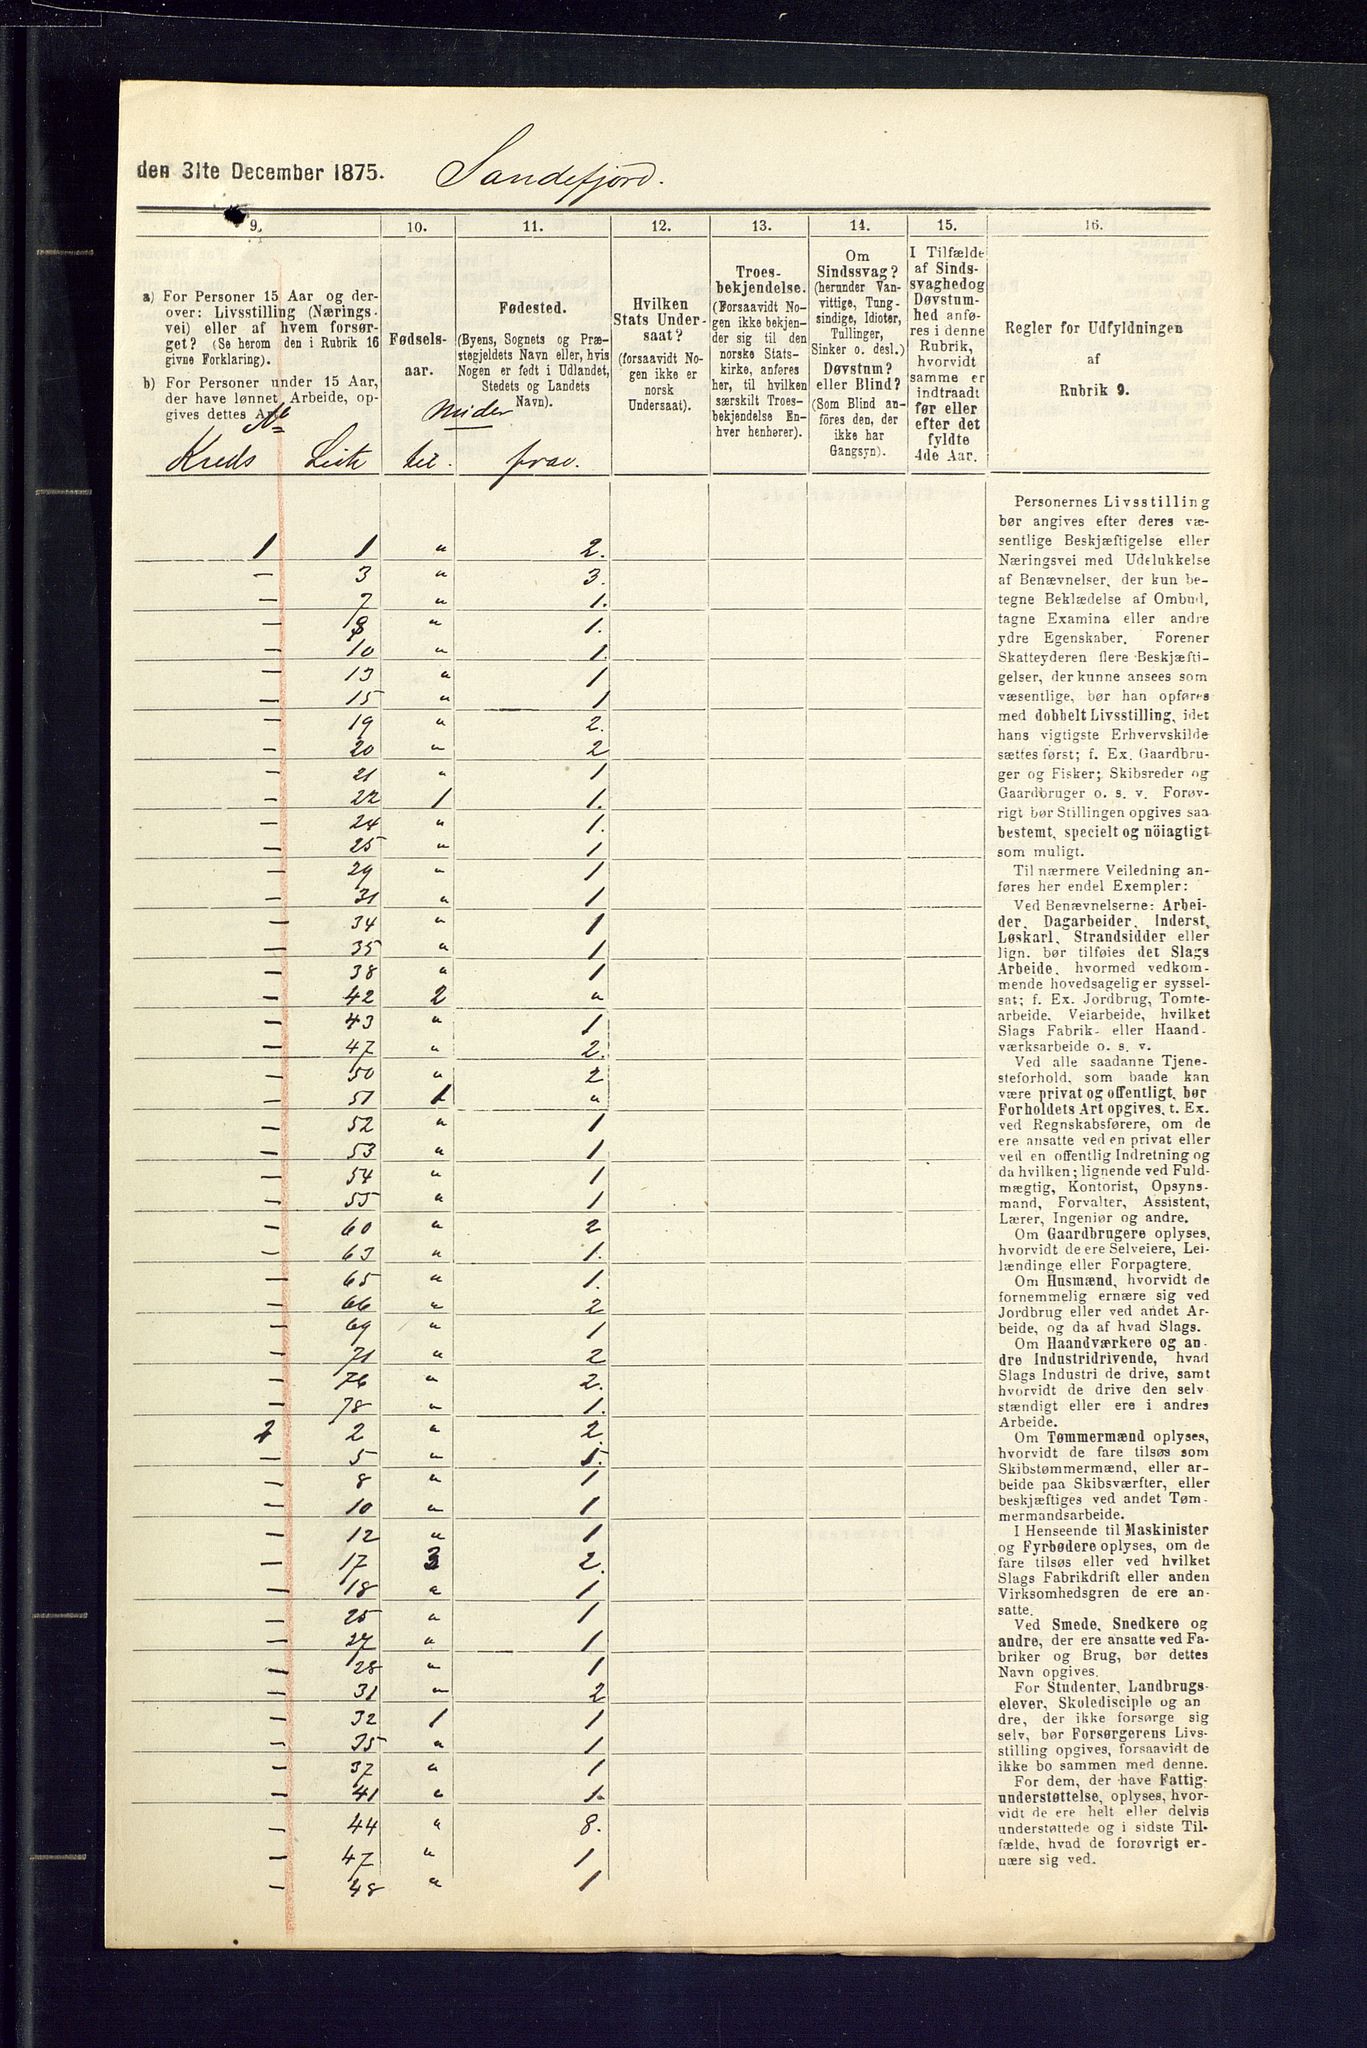 den 31te December 1875. Sandefjord.
9. 10. 11. 12. 13. 14. 15. 16.
a) For Personer 15 Aar og der-
over: Livsstilling (Nærings-
vei) eller af hvem forsør-
get? (Se herom den i Rubrik 16
givne Forklaring).
b) For Personer under 15 Aar,
der have lønnet Arbeide, op-
gives dettes Art.
Fødsels-
aar.
Fødested.
(Byens, Sognets og Præ-
stegjeldets Navn eller, hvis
Nogen er født i Udlandet,
Stedets og Landets
Navn).
Hvilken
Stats Under-
saat?
(forsaavidt No-
gen ikke er
norsk
Undersaat).
Troes-
bekjendelse.
(Forsaavidt No-
gen ikke bekjen-
der sig til den
norske Stats-
kirke, anføres
her, til hvilken
særskilt Troes-
bekjendelse En-
hver henhører).
Om
Sindssvag?
(herunder Van-
vittige, Tung-
sindige, Idioter,
Tullinger,
Sinker o. desl.)
Døvstum?
eller Blind?
(Som Blind an-
føres den, der
ikke har
Gangsyn).
I Tilfælde
af Sinds-
svaghed og
Døvstum-
hed anfø-
res i denne
Rubrik,
hvorvidt
samme er
indtraadt
før eller
efter det
fyldte
4de Aar.
Regler for Udfyldningen
af
Rubrik 9.
No
Kreds Liste
til. fra.
1 1 " 2.
— 3 " 3.
— 7 " 1.
— 8 " 1.
— 10 " 1.
— 13 " 1
— 15 " 1
— 19 " 2.
— 20 " 2
— 21 " 1
— 22 1 1.
— 24 " 1.
— 25 " 1
— 29 " 1
— 31 " 1
— 34 " 1
— 35 " 1
— 38 " 1
— 42 2 "
— 43 " 1
— 47 " 2.
— 50 " 2
— 51 1 "
— 52 " 1
— 53 " 1
— 54 " 1
— 55 " 1
— 60 " 2
— 63 " 1.
— 65 " 1.
— 66 " 2
— 69 " 1
— 71 " 2
— 76 " 2.
— 78 " 1.
2 2 " 2.
— 5 " 1.
— 8 " 1
— 10 " 1
— 12 " 1
— 17 3 2.
— 18 " 1
— 25 " 1
— 27 " 1
— 28 " 1
— 31 " 2
— 32 1 1
— 35 " 1
— 37 " 1
— 41 " 1
— 44 " 8.
— 47 " 1
— 48 " 1
Personernes Livsstilling
bør angives efter deres væ-
sentlige Beskjæftigelse eller
Næringsvei med Udelukkelse
af Benævnelser, der kun be-
tegne Beklædelse af Ombud,
tagne Examina eller andre
ydre Egenskaber. Forener
Skatteyderen flere Beskjæfti-
gelser, der kunne ansees som
væsentlige, bør han opføres
med dobbelt Livsstilling, idet
hans vigtigste Erhvervskilde
sættes først; f. Ex. Gaardbru-
ger og Fisker; Skibsreder og
Gaardbruger o. s. v. Forøv-
rigt bør Stillingen opgives saa
bestemt, specielt og nöiagtigt
som muligt.
Til nærmere Veiledning an-
føres her endel Exempler:
Ved Benævnelserne: Arbei-
der, Dagarbeider, Inderst,
Løskarl, Strandsidder eller
lign. bør tilføies det Slags
Arbeide, hvormed vedkom-
mende hovedsagelig er syssel-
sat; f. Ex. Jordbrug, Tomte-
arbeide, Veiarbeide, hvilket
Slags Fabrik- eller Haand-
værksarbeide o. s. v.
Ved alle saadanne Tjene-
steforhold, som baade kan
være privat og offentligt, bør
Forholdets Art opgives, t. Ex.
ved Regnskabsførere, om de
ere ansatte ved en privat eller
ved en offentlig Indretning og
da hvilken; lignende ved Fuld-
mægtig, Kontorist, Opsyns-
mand, Forvalter, Assistent,
Lærer, Ingeniør og andre.
Om Gaardbrugere oplyses,
hvorvidt de ere Selveiere, Lei-
lændinge eller Forpagtere.
Om Husmænd, hvorvidt de
fornemmelig ernære sig ved
Jordbrug eller ved andet Ar-
beide, og da af hvad Slags.
Om Haandværkere og an-
dre Industridrivende, hvad
Slags Industri de drive, samt
hvorvidt de drive den selv-
stændigt eller ere i andres
Arbeide.
Om Tømmermænd oplyses,
hvorvidt de fare tilsøs som
Skibstømmermænd, eller ar-
beide paa Skibsværfter, eller
beskjæftiges ved andet Tøm-
mermandsarbeide.
I Henseende til Maskinister
og Fyrbødere oplyses, om de
fare tilsøs eller ved hvilket
Slags Fabrikdrift eller anden
Virksomhedsgren de ere an-
satte.
Ved Smede, Snedkere og
andre, der ere ansatte ved Fa-
briker og Brug, bør dettes
Navn opgives.
For Studenter, Landbrugs-
elever, Skoledisciple og an-
dre, der ikke forsørge sig
selv, bør Forsørgerens Livs-
stilling opgives, forsaavidt de
ikke bo sammen med denne.
For dem, der have Fattig-
understøttelse, oplyses, hvor-
vidt de ere helt eller delvis
understøttede og i sidste Til-
fælde, hvad de forøvrigt er-
nære sig ved.